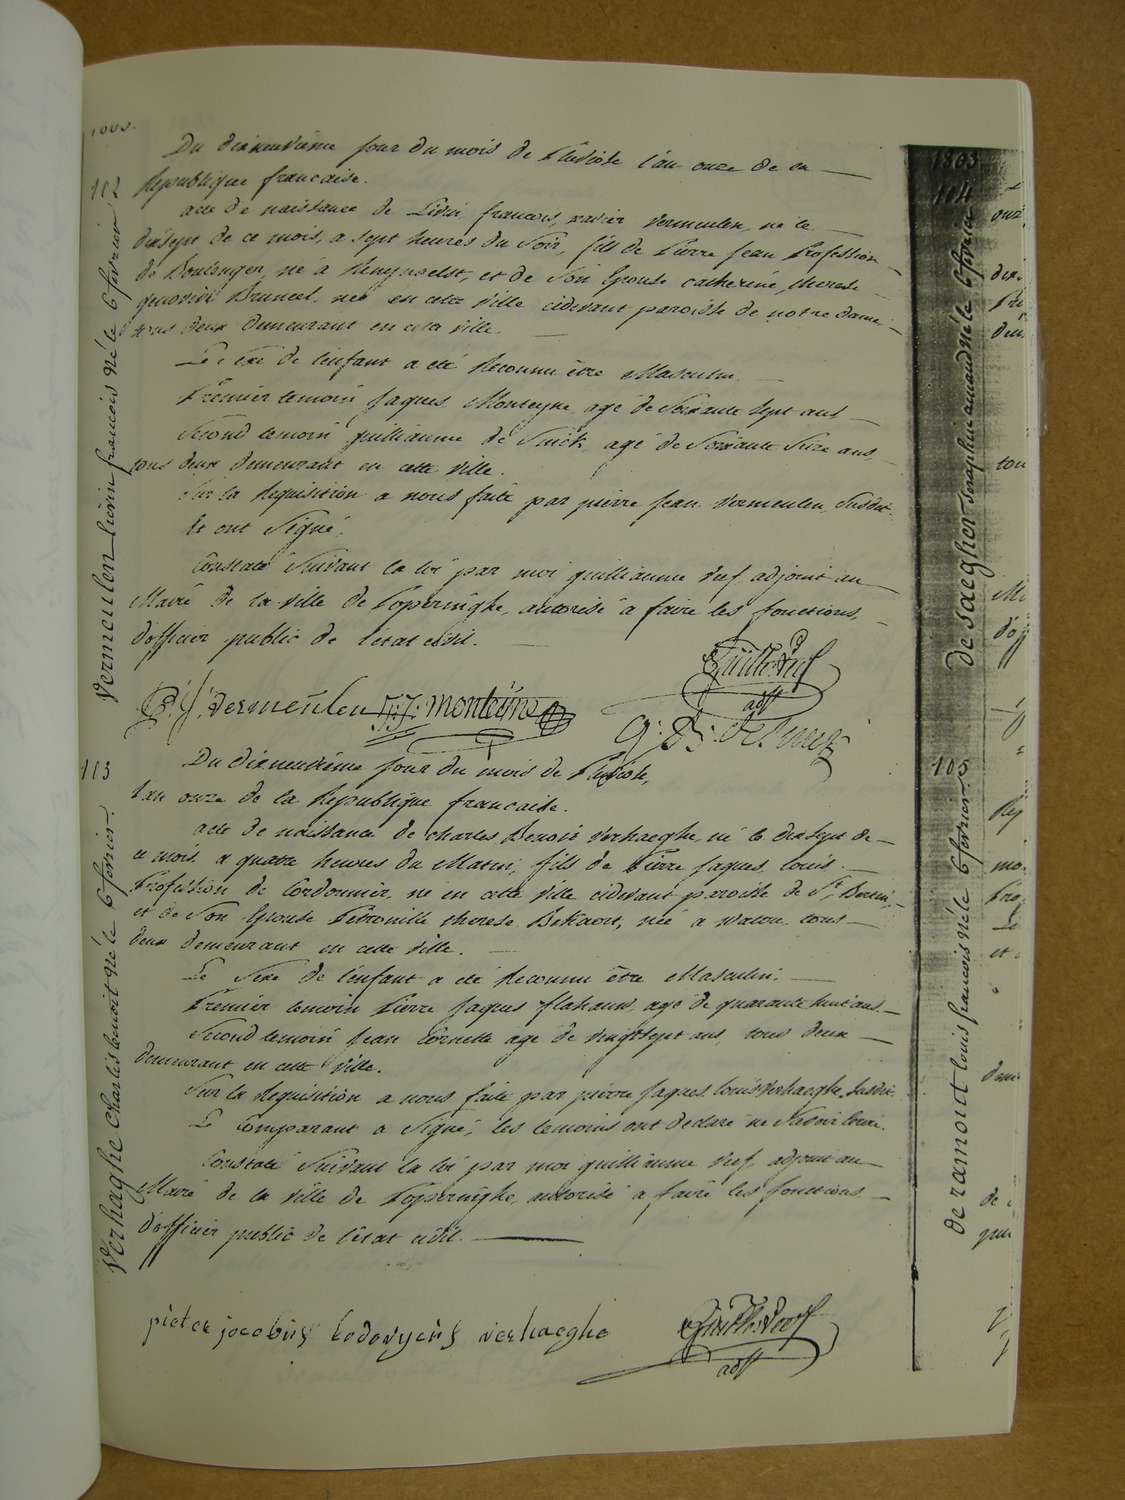 Du dixneuvieme jour du mois de Pluviose l'an onze de la
112 Republique francaise.
acte de naissance de Livin, francois, xavier vermeulen, né le
dixsept de ce mois, a sept heures du Soir, fils de Pierre Jean Profession
de Boulenger, né à Renynxelst, et de Son Epouse catherine, therese
genovive Bruneel, née en cette ville cidevant paroisse de notre dame
tous deux demeurant en cette ville.
Le Sexe de l'enfant a eté Reconnu être Masculin
Premier temoin Jaques Monteyne agé de Soixante Sept ans
Second temoin guilliaume de agé de Soixante Seize ans,
tous deux demeurant en cette ville.
Sur la Requisition a nous faite par pierre Jean vermeulen Susdit
et ont Signé,
Constaté Suivant la loi par moi guilliaume adjoint au
Maire de la ville de Poperinghe, autorisé a faire les fonctions,
d'officier public de l'etat civil.
P: J: vermeulen J: J: monteine
adjt
Vermeulen Livin francois né le 6 fevrier
113 Du dixneuvieme jour du mois de Pluviose,
l'an onze de la Republique francaise.
acte de naissance de charles Benoit Verhaeghe, né le dixsept de
ce mois, a quatre heures du Matin, fils de Pierre Jaques Louis
Profession de Cordonnier, né en cette ville cidevant paroisse de St Bertin,
et de Son Epouse Petronille therese Bekaert, née a watou tous
deux demeurant en cette ville.
Le Sexe de l'enfant a eté Reconnu être Masculin.
Premier temoin Pierre Jaques flahauw, agé de quarante huit ans
Second temoin Jean Cornette agé de vingtsept ans, tous deux
demeurant en cette ville.
Sur la Requisition a nous faite par pierre Jaques Louis Verhaeghe, Susdit
Le Comparant a Signé, les temoins ont declaré ne Savoir Ecrire.
Constaté Suivant la loi par moi guilliaume adjoint au
Maire de la ville de Poperinghe, autorisé a faire les fonctions
d'officier public de l'etat civil.
pieter jacobus Lodovycus verhaeghe
adjt
Verhaghe Charles benoit né le 6 fevrier.
1803
104
de saegher seraphin amand né le 6 fevrier
105
deramoudt louis francois né le 6 fevrier.